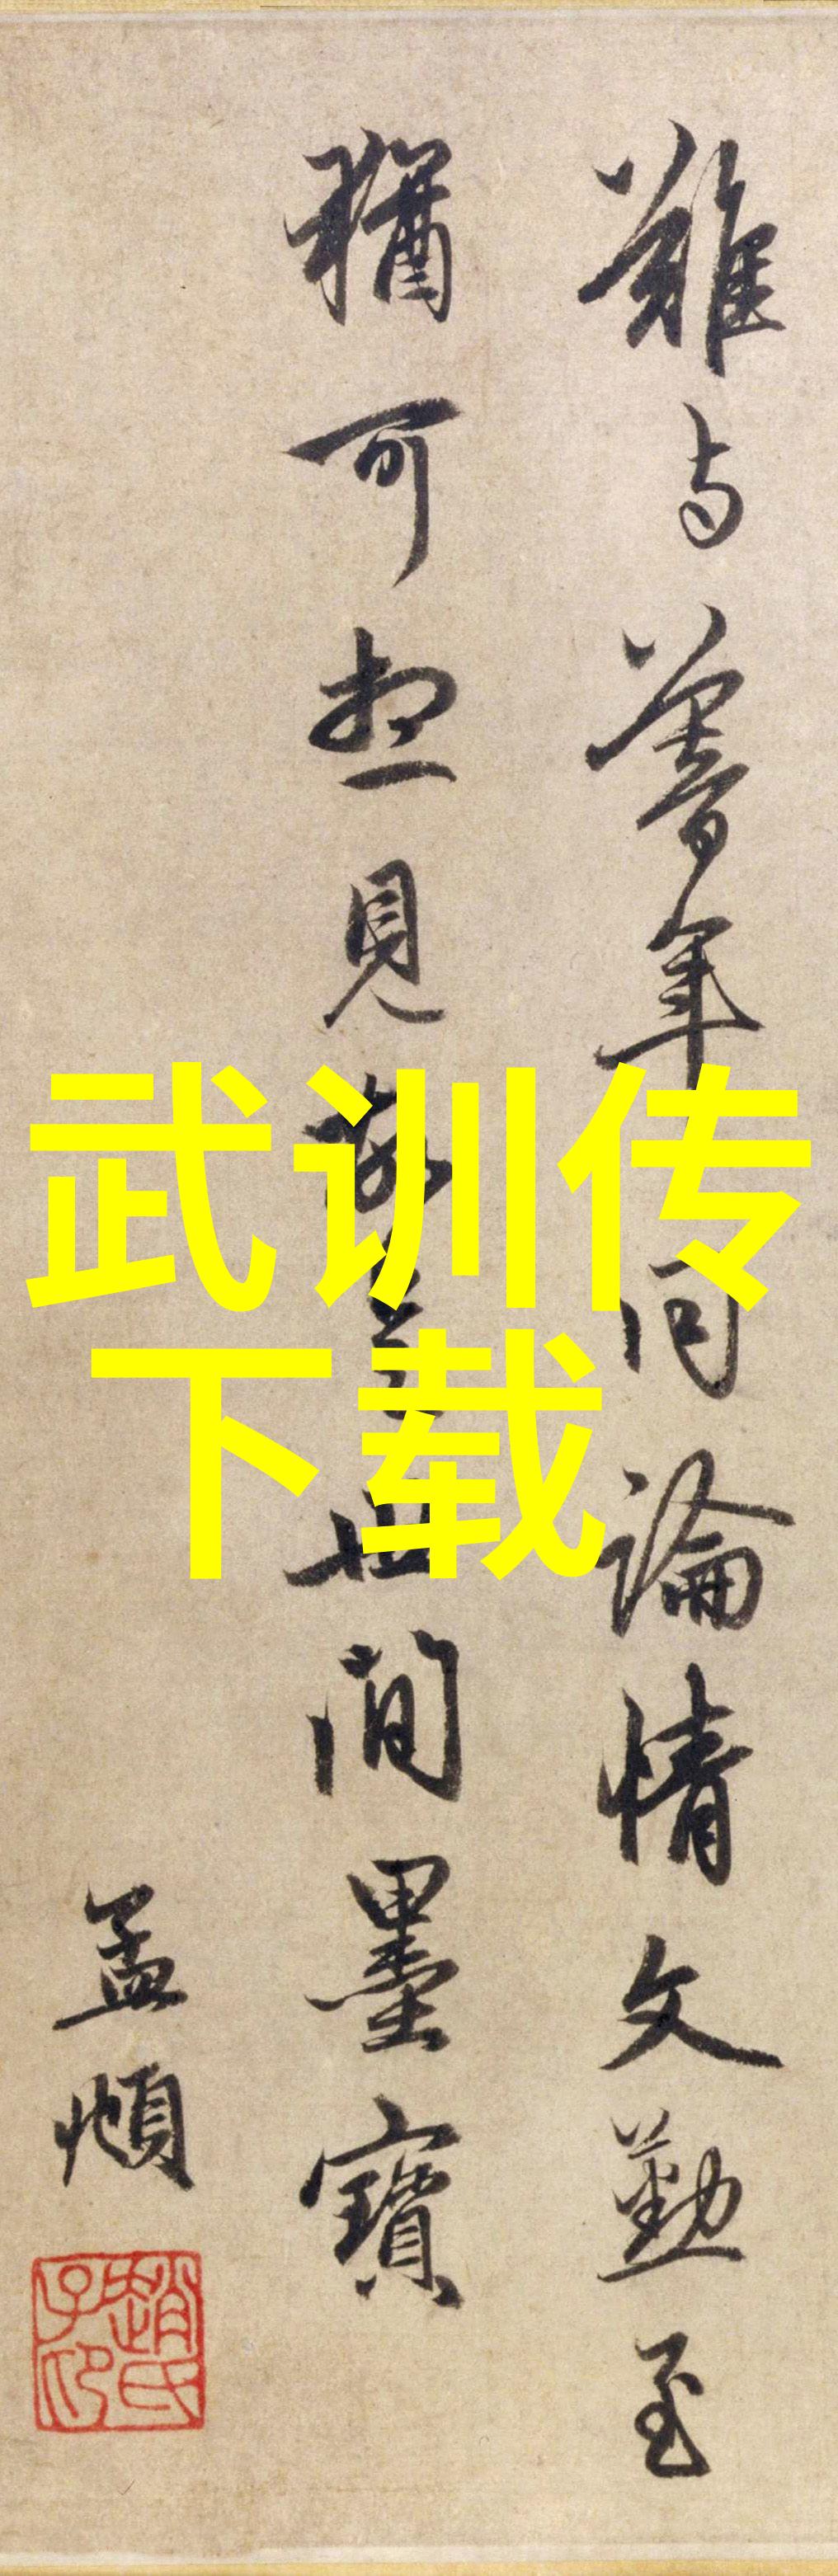 難与年同論情文勤至
猶可想見故世間墨寶
孟頫
趙氏子昂
武训传
下载